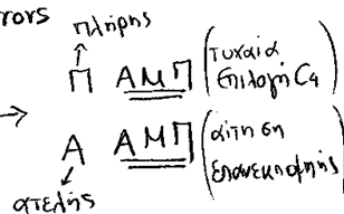 rors
πλήρης
Π ΑΜΠ (τυχαία
επιλογή C4
→
Α ΑΜΠ (αίτηση
επανεκπομπής)
ατελής